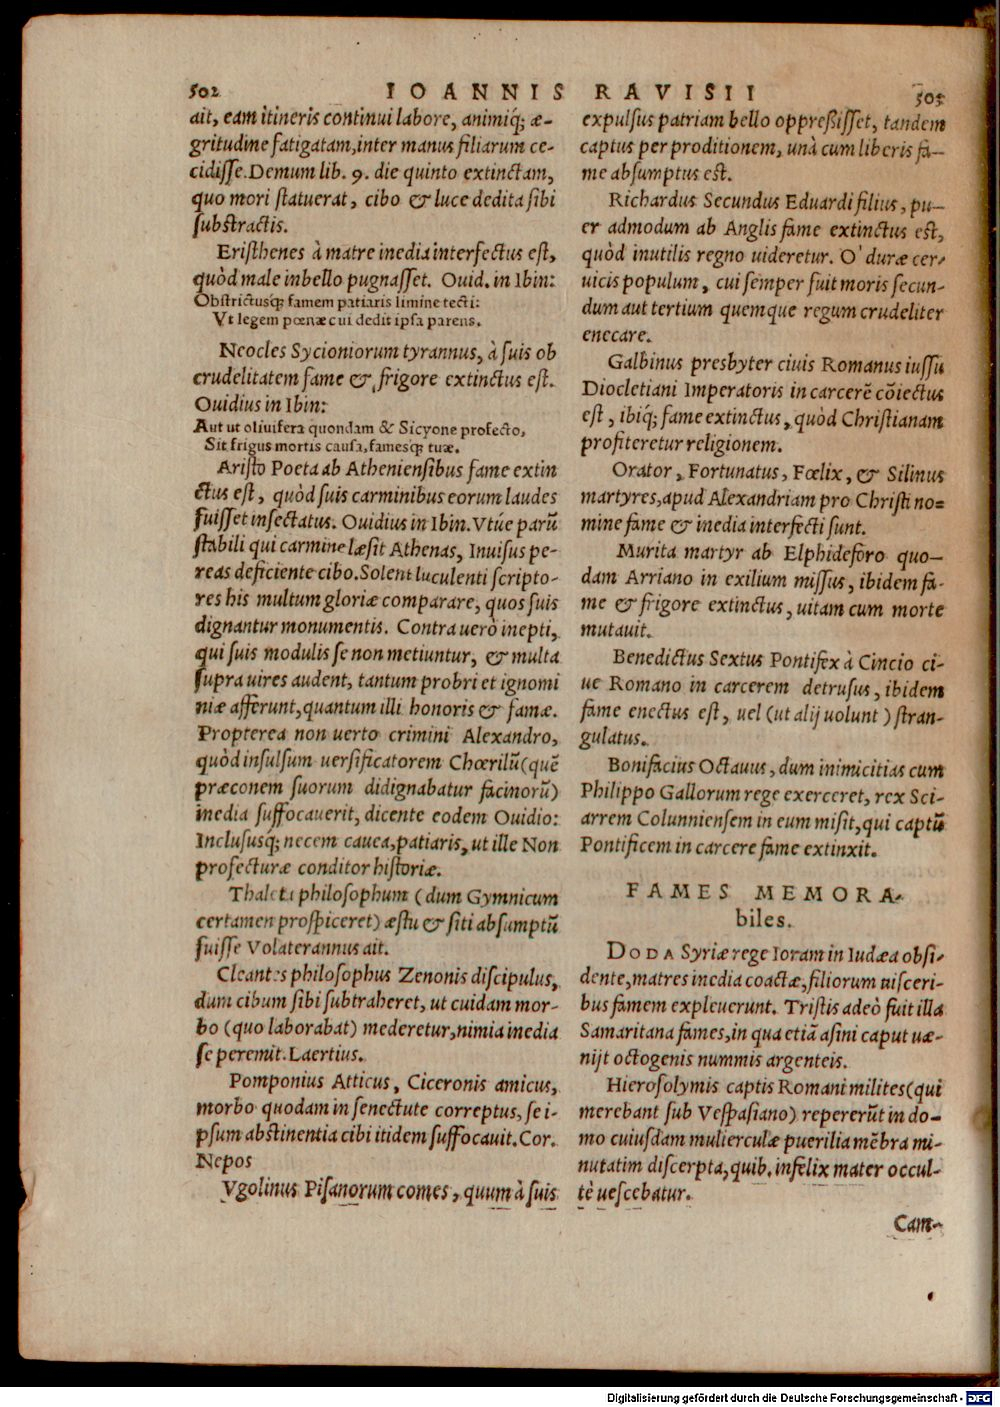 502 IOANNIS RAVISII 503
ait, eam itineris continui labore, animiq́; æ-
gritudine fatigatam, inter manus filiarum ce-
cidisse. Demum lib. 9. die quinto extinctam,
quo mori statuerat, cibo & luce dedita sibi
substractis.
Eristhenes à matre inedia interfectus est,
quòd male in bello pugnasset. Ouid. in Ibin:
Obstrictusq́; famem patiaris limine tecti:
Vt legem pœnæ cui dedit ipsa parens.
Neocles Sycioniorum tyrannus, à suis ob
crudelitatem fame & frigore extinctus est.
Ouidius in Ibin:
Aut ut oliuifera quondam & Sicyone profecto,
Sit frigus mortis causa, famesq́; tuæ.
Aristo Poeta ab Atheniensibus fame extin
ctus est, quòd suis carminibus eorum laudes
fuisset insectatus. Ouidius in Ibin. Vtúe parū
stabili qui carmine læsit Athenas, Inuisus pe-
reas deficiente cibo. Solent luculenti scripto-
res his multum gloriæ comparare, quos suis
dignantur monumentis. Contra uerò inepti,
qui suis modulis se non metiuntur, & multa
supra uires audent, tantum probri et ignomi
niæ afferunt, quantum illi honoris & famæ.
Propterea non uerto crimini Alexandro,
quòd insulsum uersificatorem Chœrilū (quē
præconem suorum didignabatur facinorū)
inedia suffocauerit, dicente eodem Ouidio:
Inclususq́; necem cauea, patiaris, ut ille Non
profecturæ conditor historiæ.
Thaleta philosophum (dum Gymnicum
certamen prospiceret) æstu & siti absumptū
fuisse Volaterannus ait.
Cleantes philosophus Zenonis discipulus,
dum cibum sibi subtraheret, ut cuidam mor-
bo (quo laborabat) mederetur, nimia inedia
se peremit. Laertius.
Pomponius Atticus, Ciceronis amicus,
morbo quodam in senectute correptus, se i-
psum abstinentia cibi itidem suffocauit. Cor.
Nepos
Vgolinus Pisanorum comes, quum à suis
expulsus patriam bello oppreßisset, tandem
captus per proditionem, unà cum liberis fa-
me absumptus est.
Richardus Secundus Eduardi filius, pu-
er admodum ab Anglis fame extinctus est,
quòd inutilis regno uideretur. O' duræ cer-
uicis populum, cui semper fuit moris secun-
dum aut tertium quemque regum crudeliter
enecare.
Galbinus presbyter ciuis Romanus iussu
Diocletiani Imperatoris in carcerē cōiectus
est, ibiq́; fame extinctus, quòd Christianam
profiteretur religionem.
Orator, Fortunatus, Fœlix, & Silinus
martyres, apud Alexandriam pro Christi no=
mine fame & inedia interfecti sunt.
Murita martyr ab Elphideforo quo-
dam Arriano in exilium missus, ibidem fa-
me & frigore extinctus, uitam cum morte
mutauit.
Benedictus Sextus Pontifex à Cincio ci-
ue Romano in carcerem detrusus, ibidem
fame enectus est, uel (ut alij uolunt) stran-
gulatus.
Bonifacius Octauus, dum inimicitias cum
Philippo Gallorum rege exerceret, rex Sci-
arrem Colunniensem in eum misit, qui captū
Pontificem in carcere fame extinxit.
FAMES MEMORA-
biles.
DODA Syriæ rege Ioram in Iudæa obsi-
dente, matres inedia coactæ, filiorum uisceri-
bus famem expleuerunt. Tristis adeò fuit illa
Samaritana fames, in qua etiā asini caput uæ-
nijt octogenis nummis argenteis.
Hierosolymis captis Romani milites (qui
merebant sub Vespasiano) repererūt in do-
mo cuiusdam mulierculæ puerilia mēbra mi-
nutatim discerpta, quib. infelix mater occul-
tè uescebatur.
Cam-
Digitalisierung gefördert durch die Deutsche Forschungsgemeinschaft - DFG